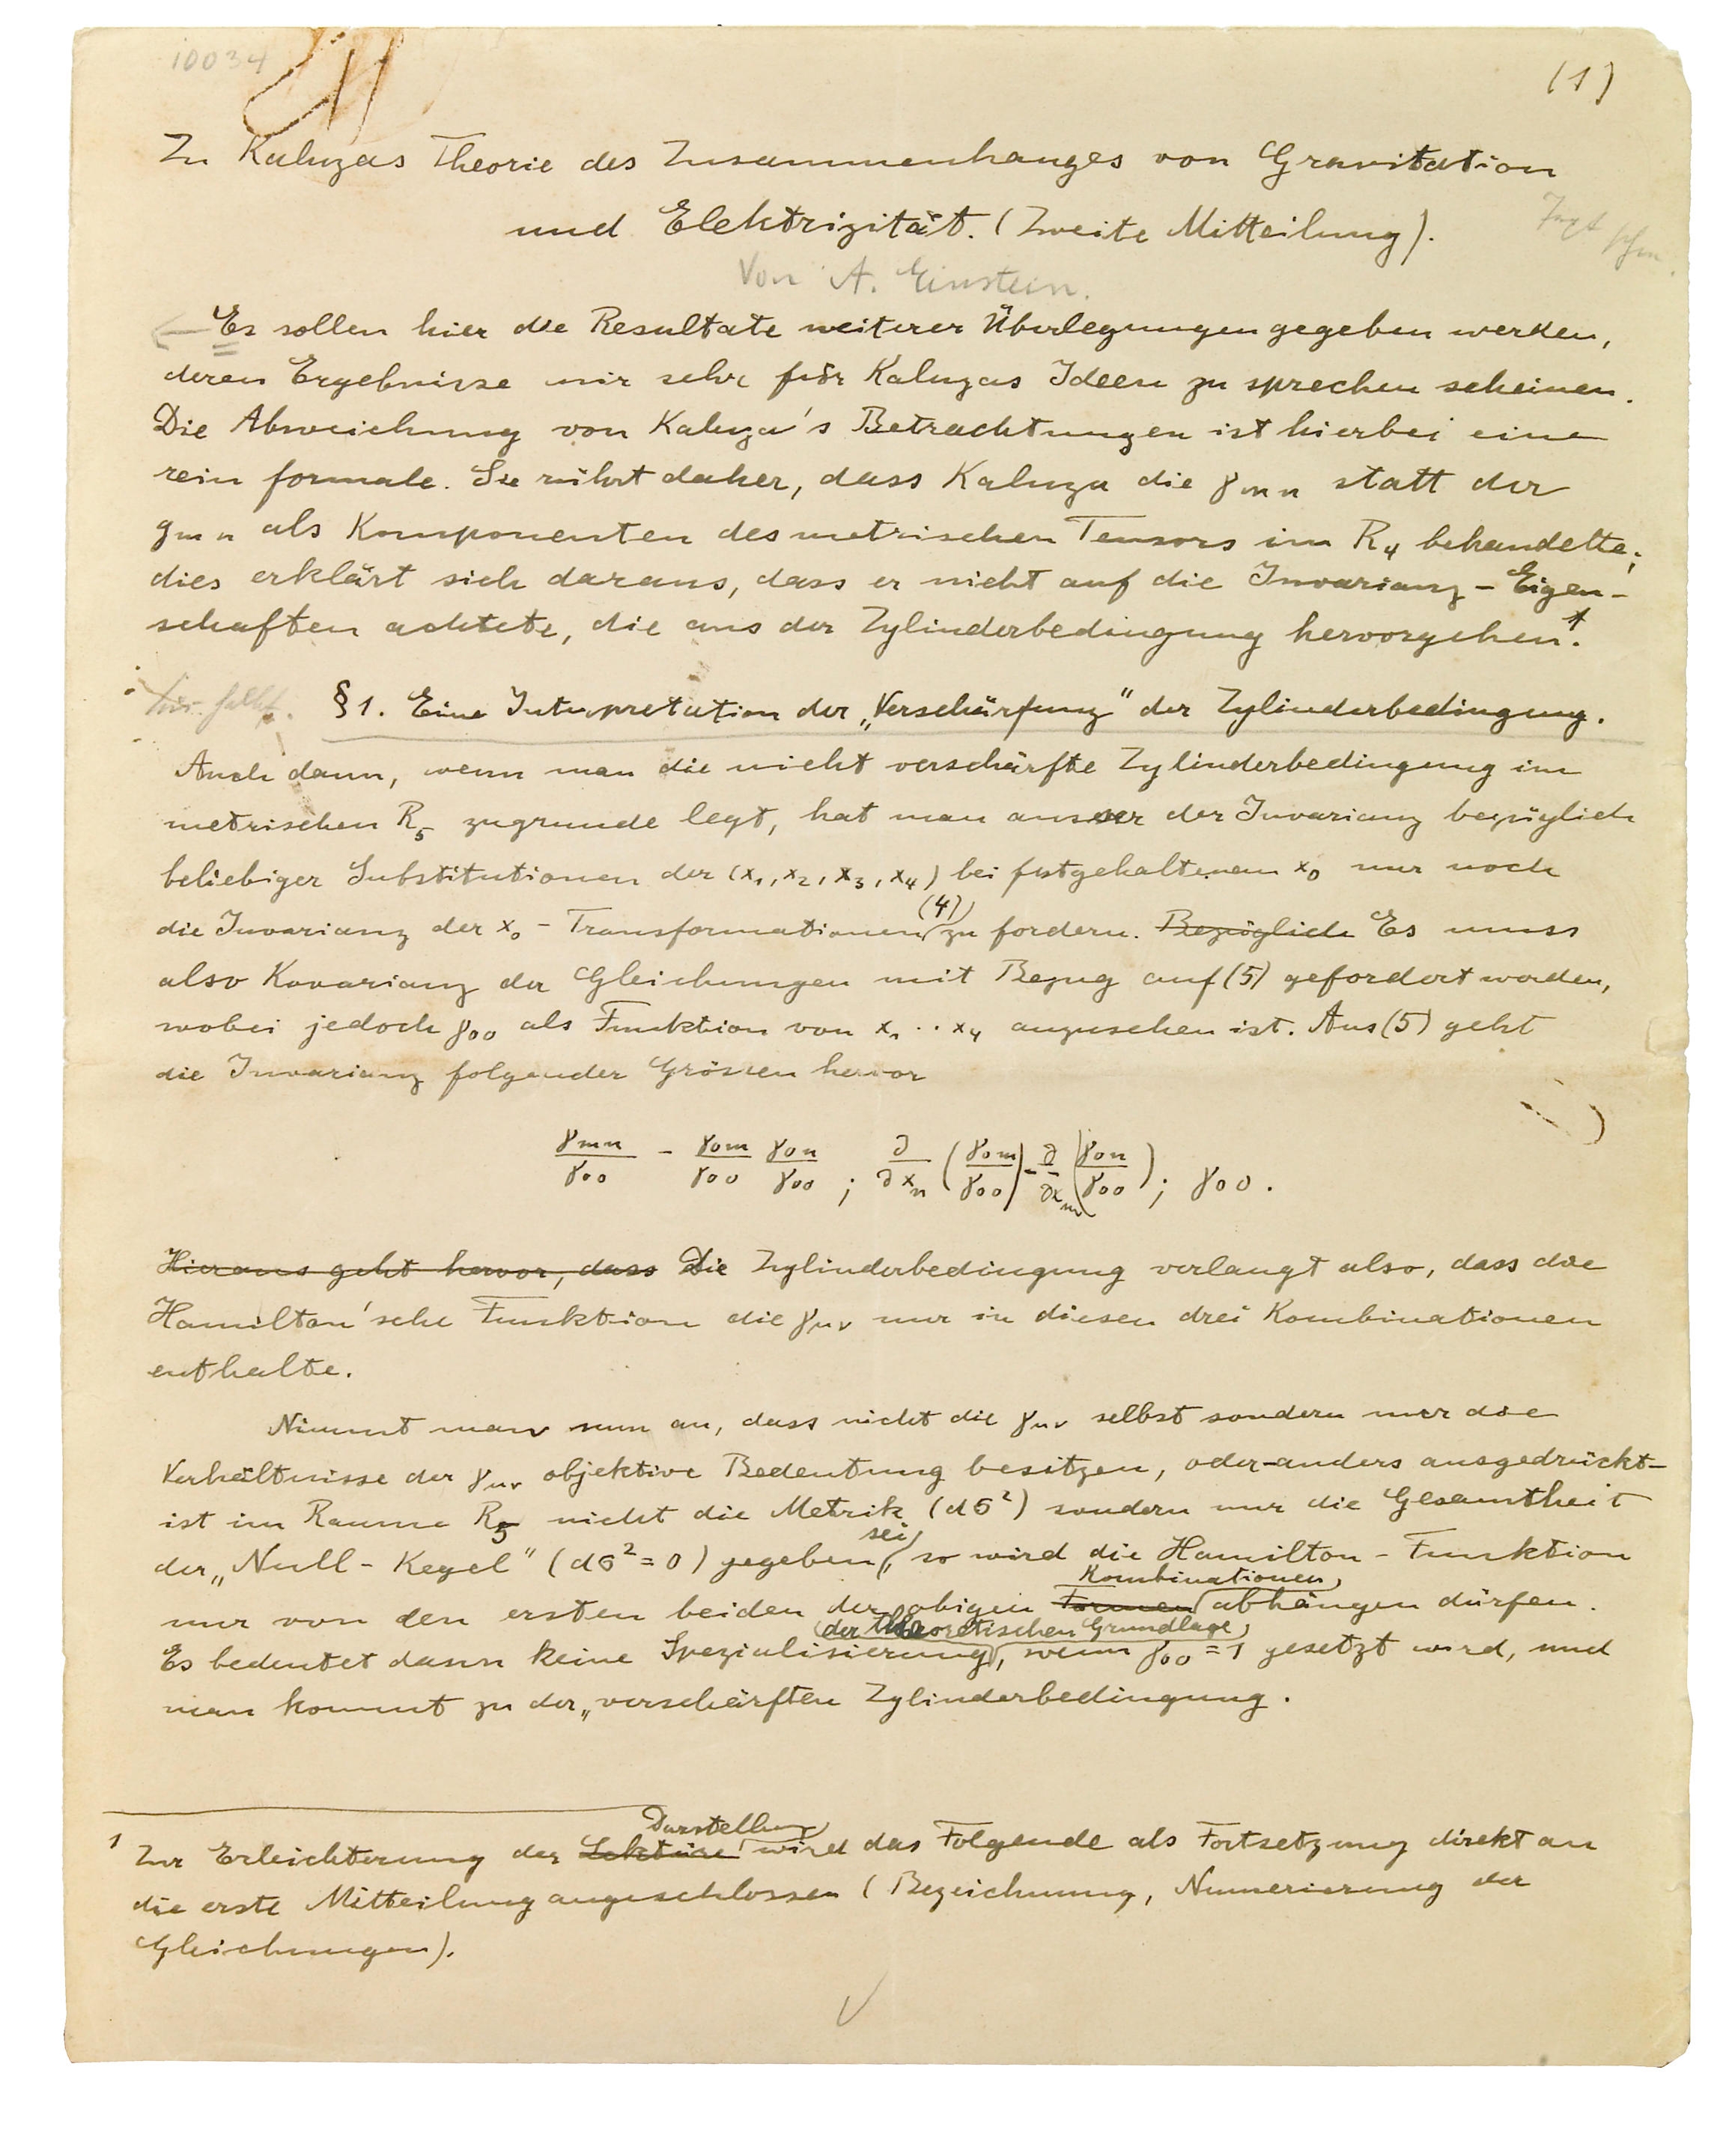 10034
(1)
Zu Kaluzas Theorie des Zusammenhanges von Gravitation
und Elektrizität. (Zweite Mitteilung).
Von A. Einstein.
Es sollen hier die Resultate weiterer Überlegungen gegeben werden,
deren Ergebnisse mir sehr für Kaluzas Ideen zu sprechen scheinen.
Die Abweichung von Kaluza's Betrachtungen ist hierbei eine
rein formale. Sie rührt daher, dass Kaluza die γmn statt der
gmn als Komponenten des metrischen Tensors im R4 behandelte;
dies erklärt sich daraus, dass er nicht auf die Invarianz-Eigen-
schaften achtete, die aus der Zylinderbedingung hervorgehen.¹
§1. Eine Interpretation der „Verschärfung" der Zylinderbedingung.
Auch dann, wenn man die nicht verschärfte Zylinderbedingung im
metrischen R5 zugrunde legt, hat man ausser der Invarianz bezüglich
beliebiger Substitutionen der (x1, x2, x3, x4) bei festgehaltenem x0 nur noch
die Invarianz der x0-Transformationen (4) zu fordern. Bezüglich Es muss
also Kovarianz der Gleichungen mit Bezug auf (5) gefordert werden,
wobei jedoch γ00 als Funktion von x1 ·· x4 anzusehen ist. Aus (5) geht
die Invarianz folgender Grössen hervor
γmn/γ00 - γ0m/γ00 γ0n/γ00 ; ∂/∂xn (γ0m/γ00) - ∂/∂xm (γ0n/γ00) ; γ00.
Hieraus geht hervor, dass Die Zylinderbedingung verlangt also, dass die
Hamilton'sche Funktion die γμν nur in diesen drei Kombinationen
enthalte.
Nimmt man nun an, dass nicht die γμν selbst sondern nur die
Verhältnisse der γμν objektive Bedeutung besitzen, oder-anders ausgedrückt-
ist im Raume R5 nicht die Metrik (dσ²) sondern nur die Gesamtheit
der „Null-Kegel" (dσ²=0) gegeben sei, so wird die Hamilton-Funktion
nur von den ersten beiden der obigen Formen Kombinationen abhängen dürfen.
Es bedeutet dann keine Spezialisierung der theoretischen Grundlage, wenn γ00 = 1 gesetzt wird, und
man kommt zu der „verschärften Zylinderbedingung.
¹ Zur Erleichterung der Lektüre Darstellung wird das Folgende als Fortsetzung direkt an
die erste Mitteilung angeschlossen (Bezeichnung, Numerierung der
Gleichungen).